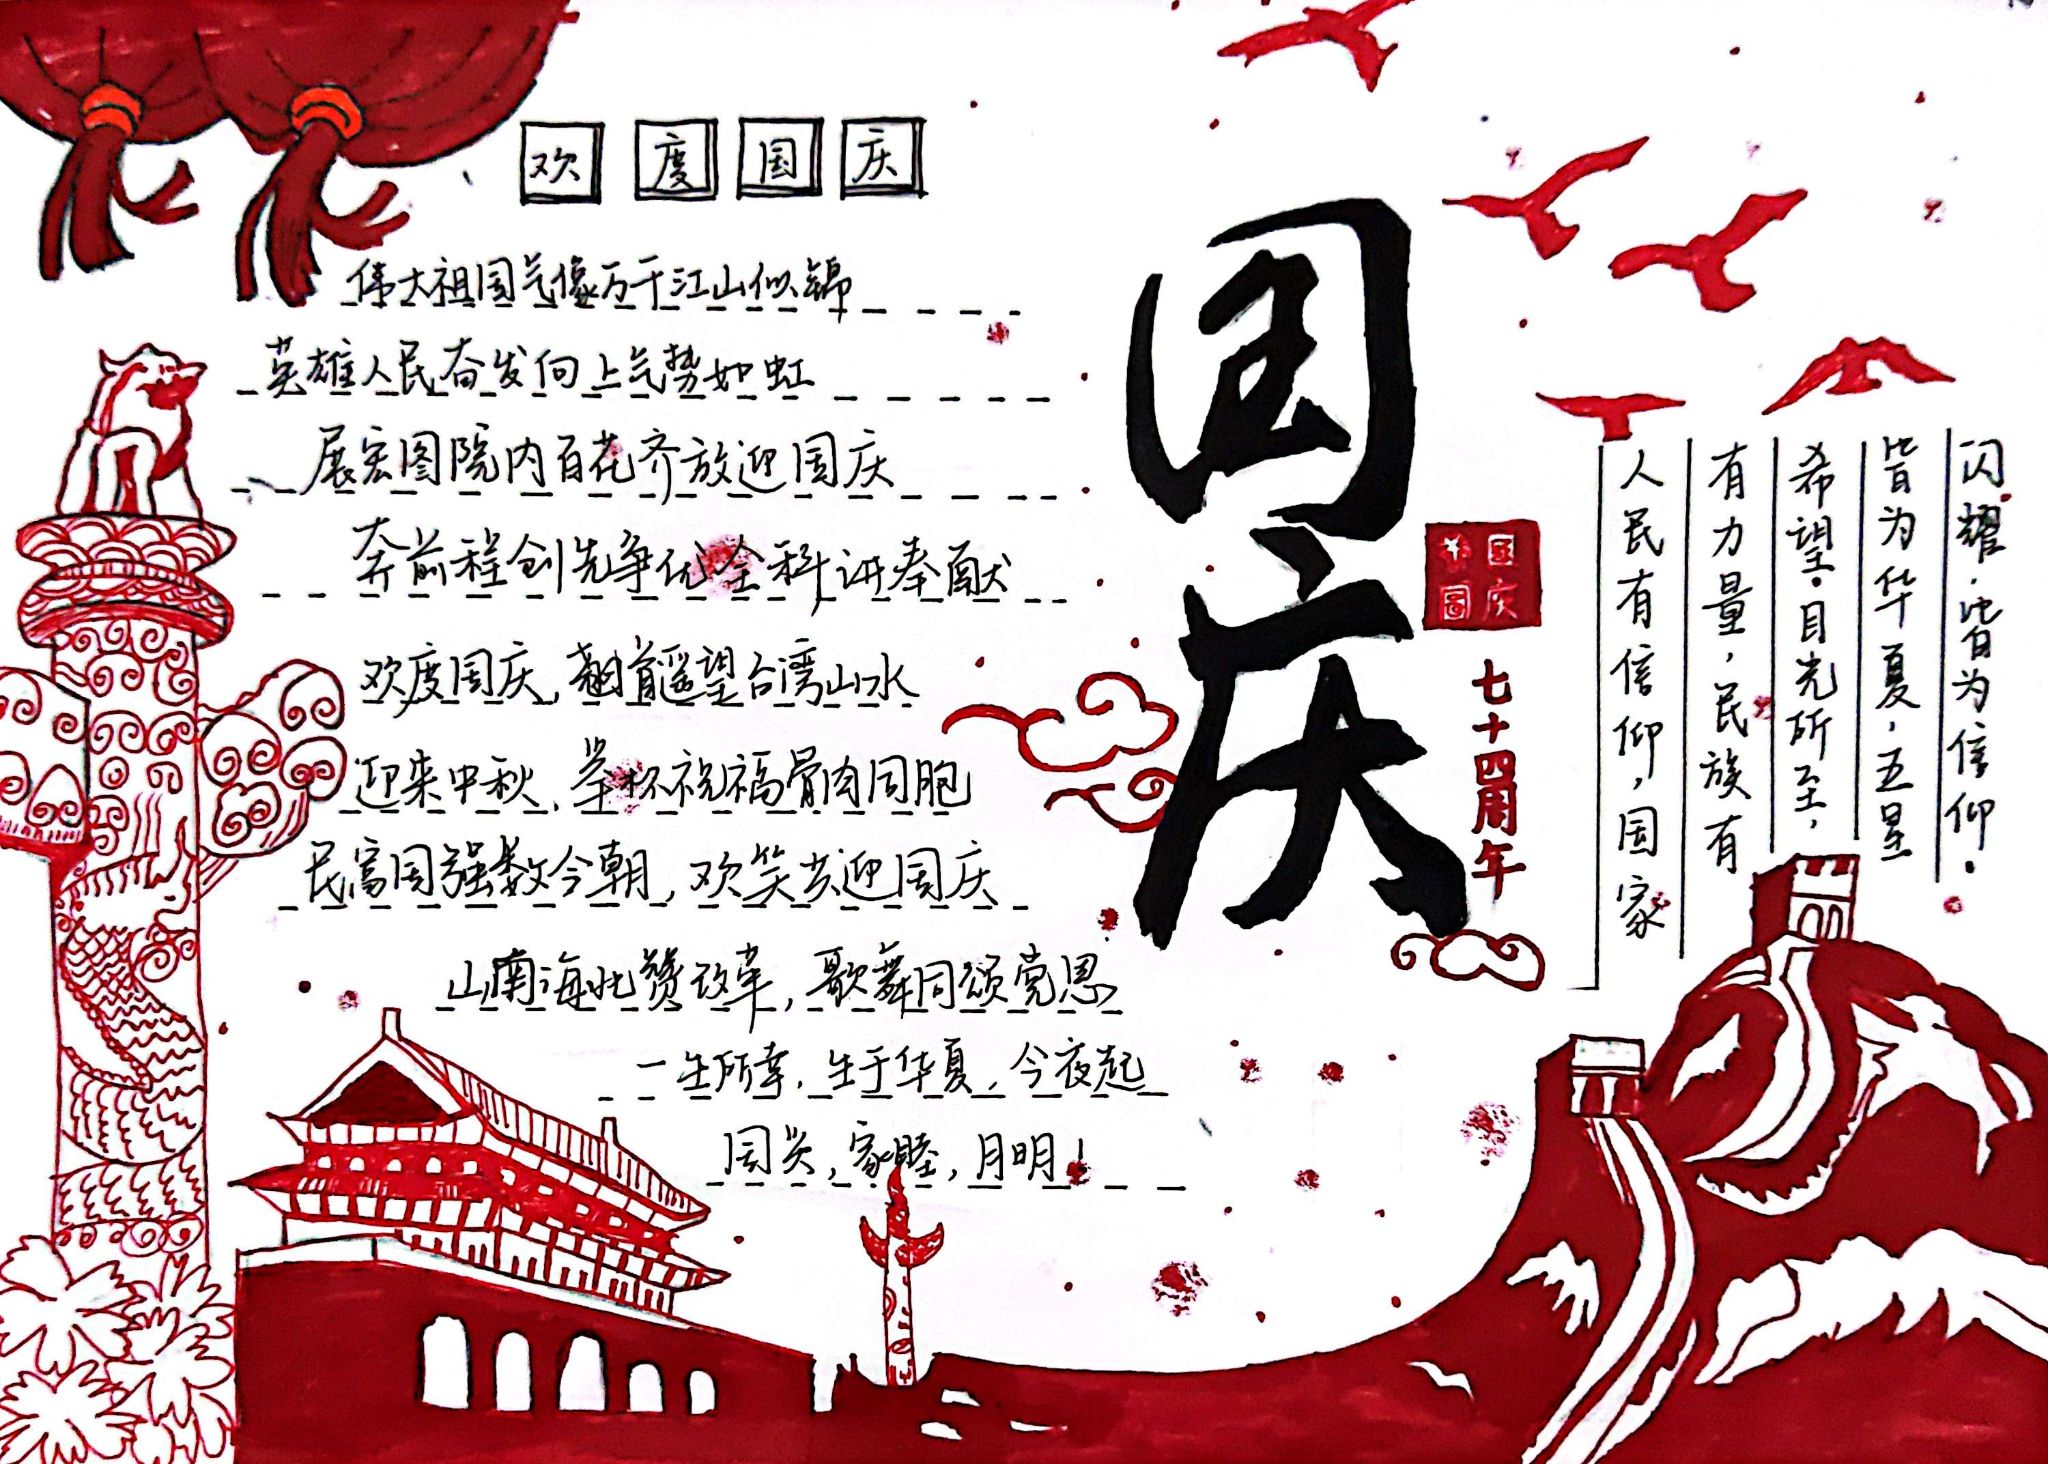 欢度国庆
伟大祖国气像万千江山似锦
英雄人民奋发向上气势如虹
展宏图院内百花齐放迎国庆
奔前程创先争优全科讲奉献
欢度国庆,翘首遥望台湾山水
迎来中秋,举杯祝福骨肉同胞
民富国强数今朝,欢笑共迎国庆
山南海北赞改革,歌舞同颂党恩
一生所幸,生于华夏,今夜起
国兴,家睦,月明!
国庆
国庆
七十四周年
人民有信仰,国家
有力量,民族有
希望。目光所至,
皆为华夏,五星
闪耀,皆为信仰。